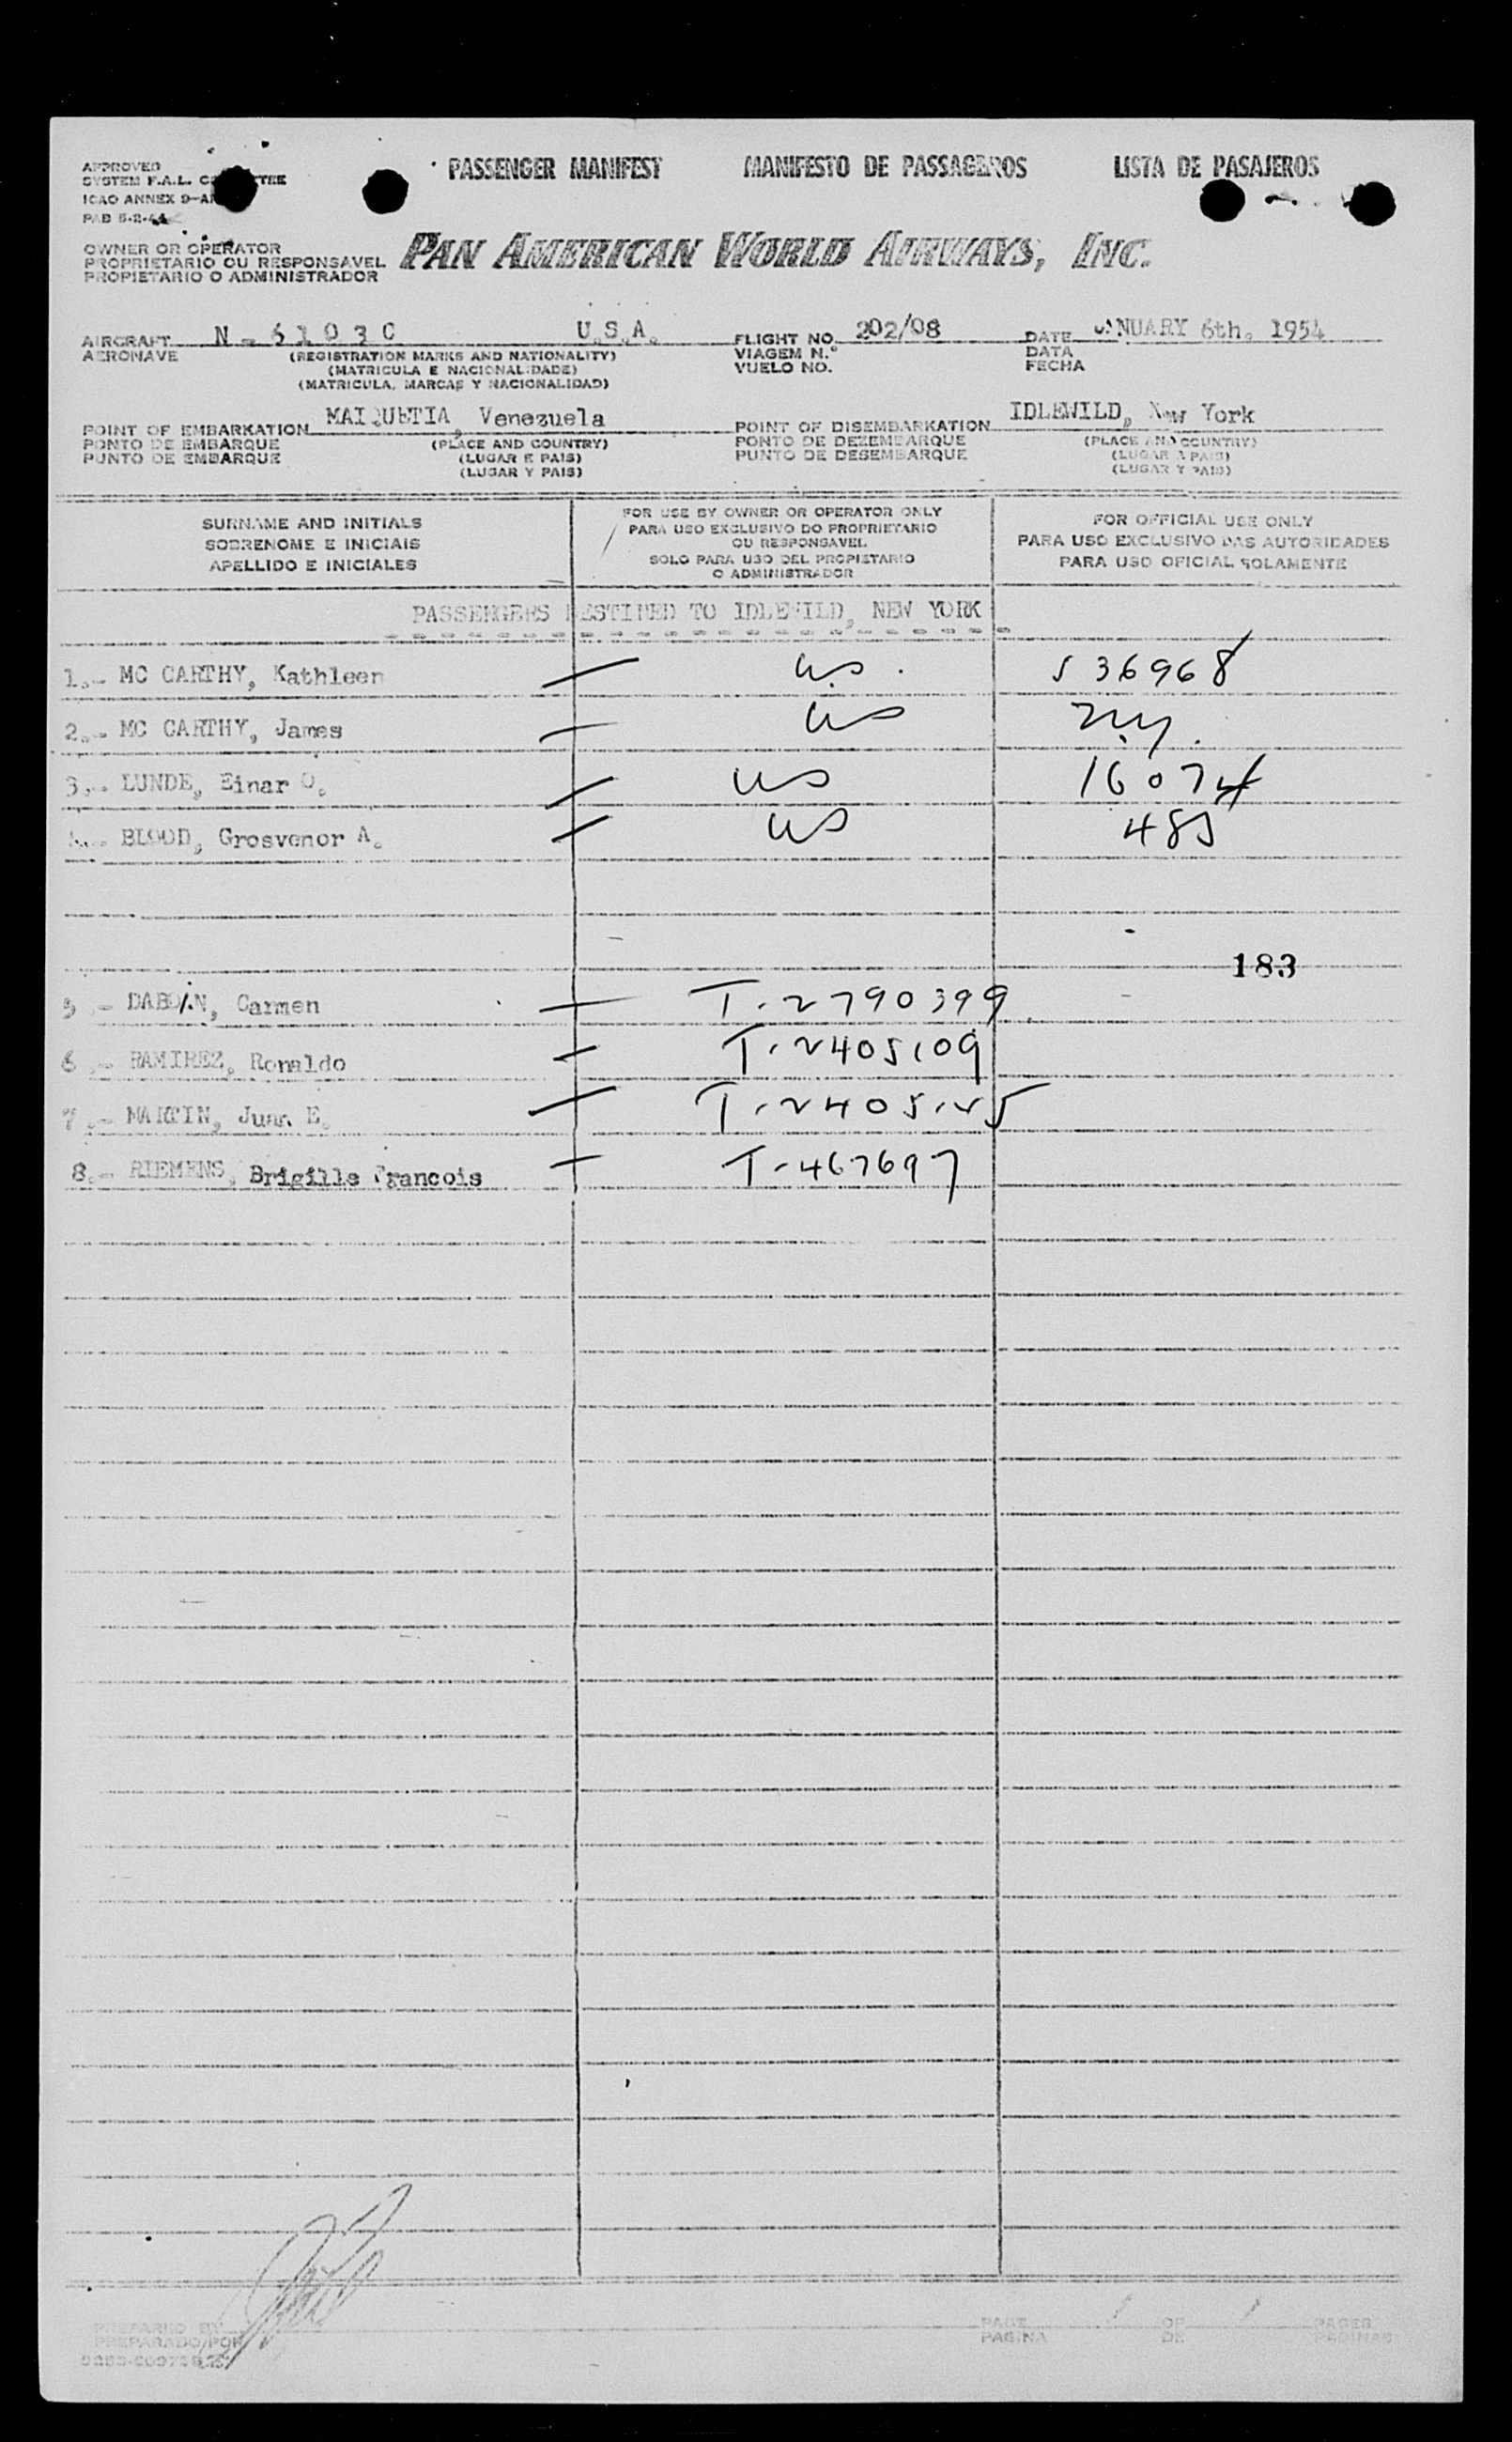 PASSENGER MANIFEST MANIFESTO DE PASSAGEIROS LISTA DE PASAJEROS
APPROVED
SYSTEM F.A.L. COMMITTEE
ICAO ANNEX 9-
PAB 5-2-44
OWNER OR OPERATOR
PROPRIETARIO OU RESPONSAVEL
PROPIETARIO O ADMINISTRADOR
PAN AMERICAN WORLD AIRWAYS, INC.
AIRCRAFT N - 6 1 0 3 0 U.S.A. FLIGHT NO. 202/08 DATE JANUARY 6th. 1954
AERONAVE (REGISTRATION MARKS AND NATIONALITY) VIAGEM N.° DATA
(MATRICULA E NACIONALIDADE) VUELO NO. FECHA
(MATRICULA, MARCAS Y NACIONALIDAD)
POINT OF EMBARKATION MAIQUETIA, Venezuela POINT OF DISEMBARKATION IDLEWILD, New York
PONTO DE EMBARQUE (PLACE AND COUNTRY) PONTO DE DEZEMBARQUE (PLACE AND COUNTRY)
PUNTO DE EMBARQUE (LUGAR E PAIS) PUNTO DE DESEMBARQUE (LUGAR E PAIS)
(LUGAR Y PAIS) (LUGAR Y PAIS)
SURNAME AND INITIALS
SOBRENOME E INICIAIS
APELLIDO E INICIALES
FOR USE BY OWNER OR OPERATOR ONLY
PARA USO EXCLUSIVO DO PROPRIETARIO
OU RESPONSAVEL
SOLO PARA USO DEL PROPIETARIO
O ADMINISTRADOR
FOR OFFICIAL USE ONLY
PARA USO EXCLUSIVO DAS AUTORIDADES
PARA USO OFICIAL SOLAMENTE
PASSENGERS DESTINED TO IDLEWILD, NEW YORK
1.- MC CARTHY, Kathleen — U.S. 536968
2.- MC CARTHY, James — US N.Y.
3.- LUNDE, Einar O. — US 16074
4.- BLOOD, Grosvenor A. — US 485
183
5.- DABOIN, Carmen — T-2790399
6.- RAMIREZ, Ronaldo — T-2405109
7.- MARTIN, Juan E. — T-2405125
8.- RIEMENS, Brigille Francois — T-467697
PREPARED BY PAGE 1 OF 1 PAGES
PREPARADO POR PAGINA DE PAGINAS